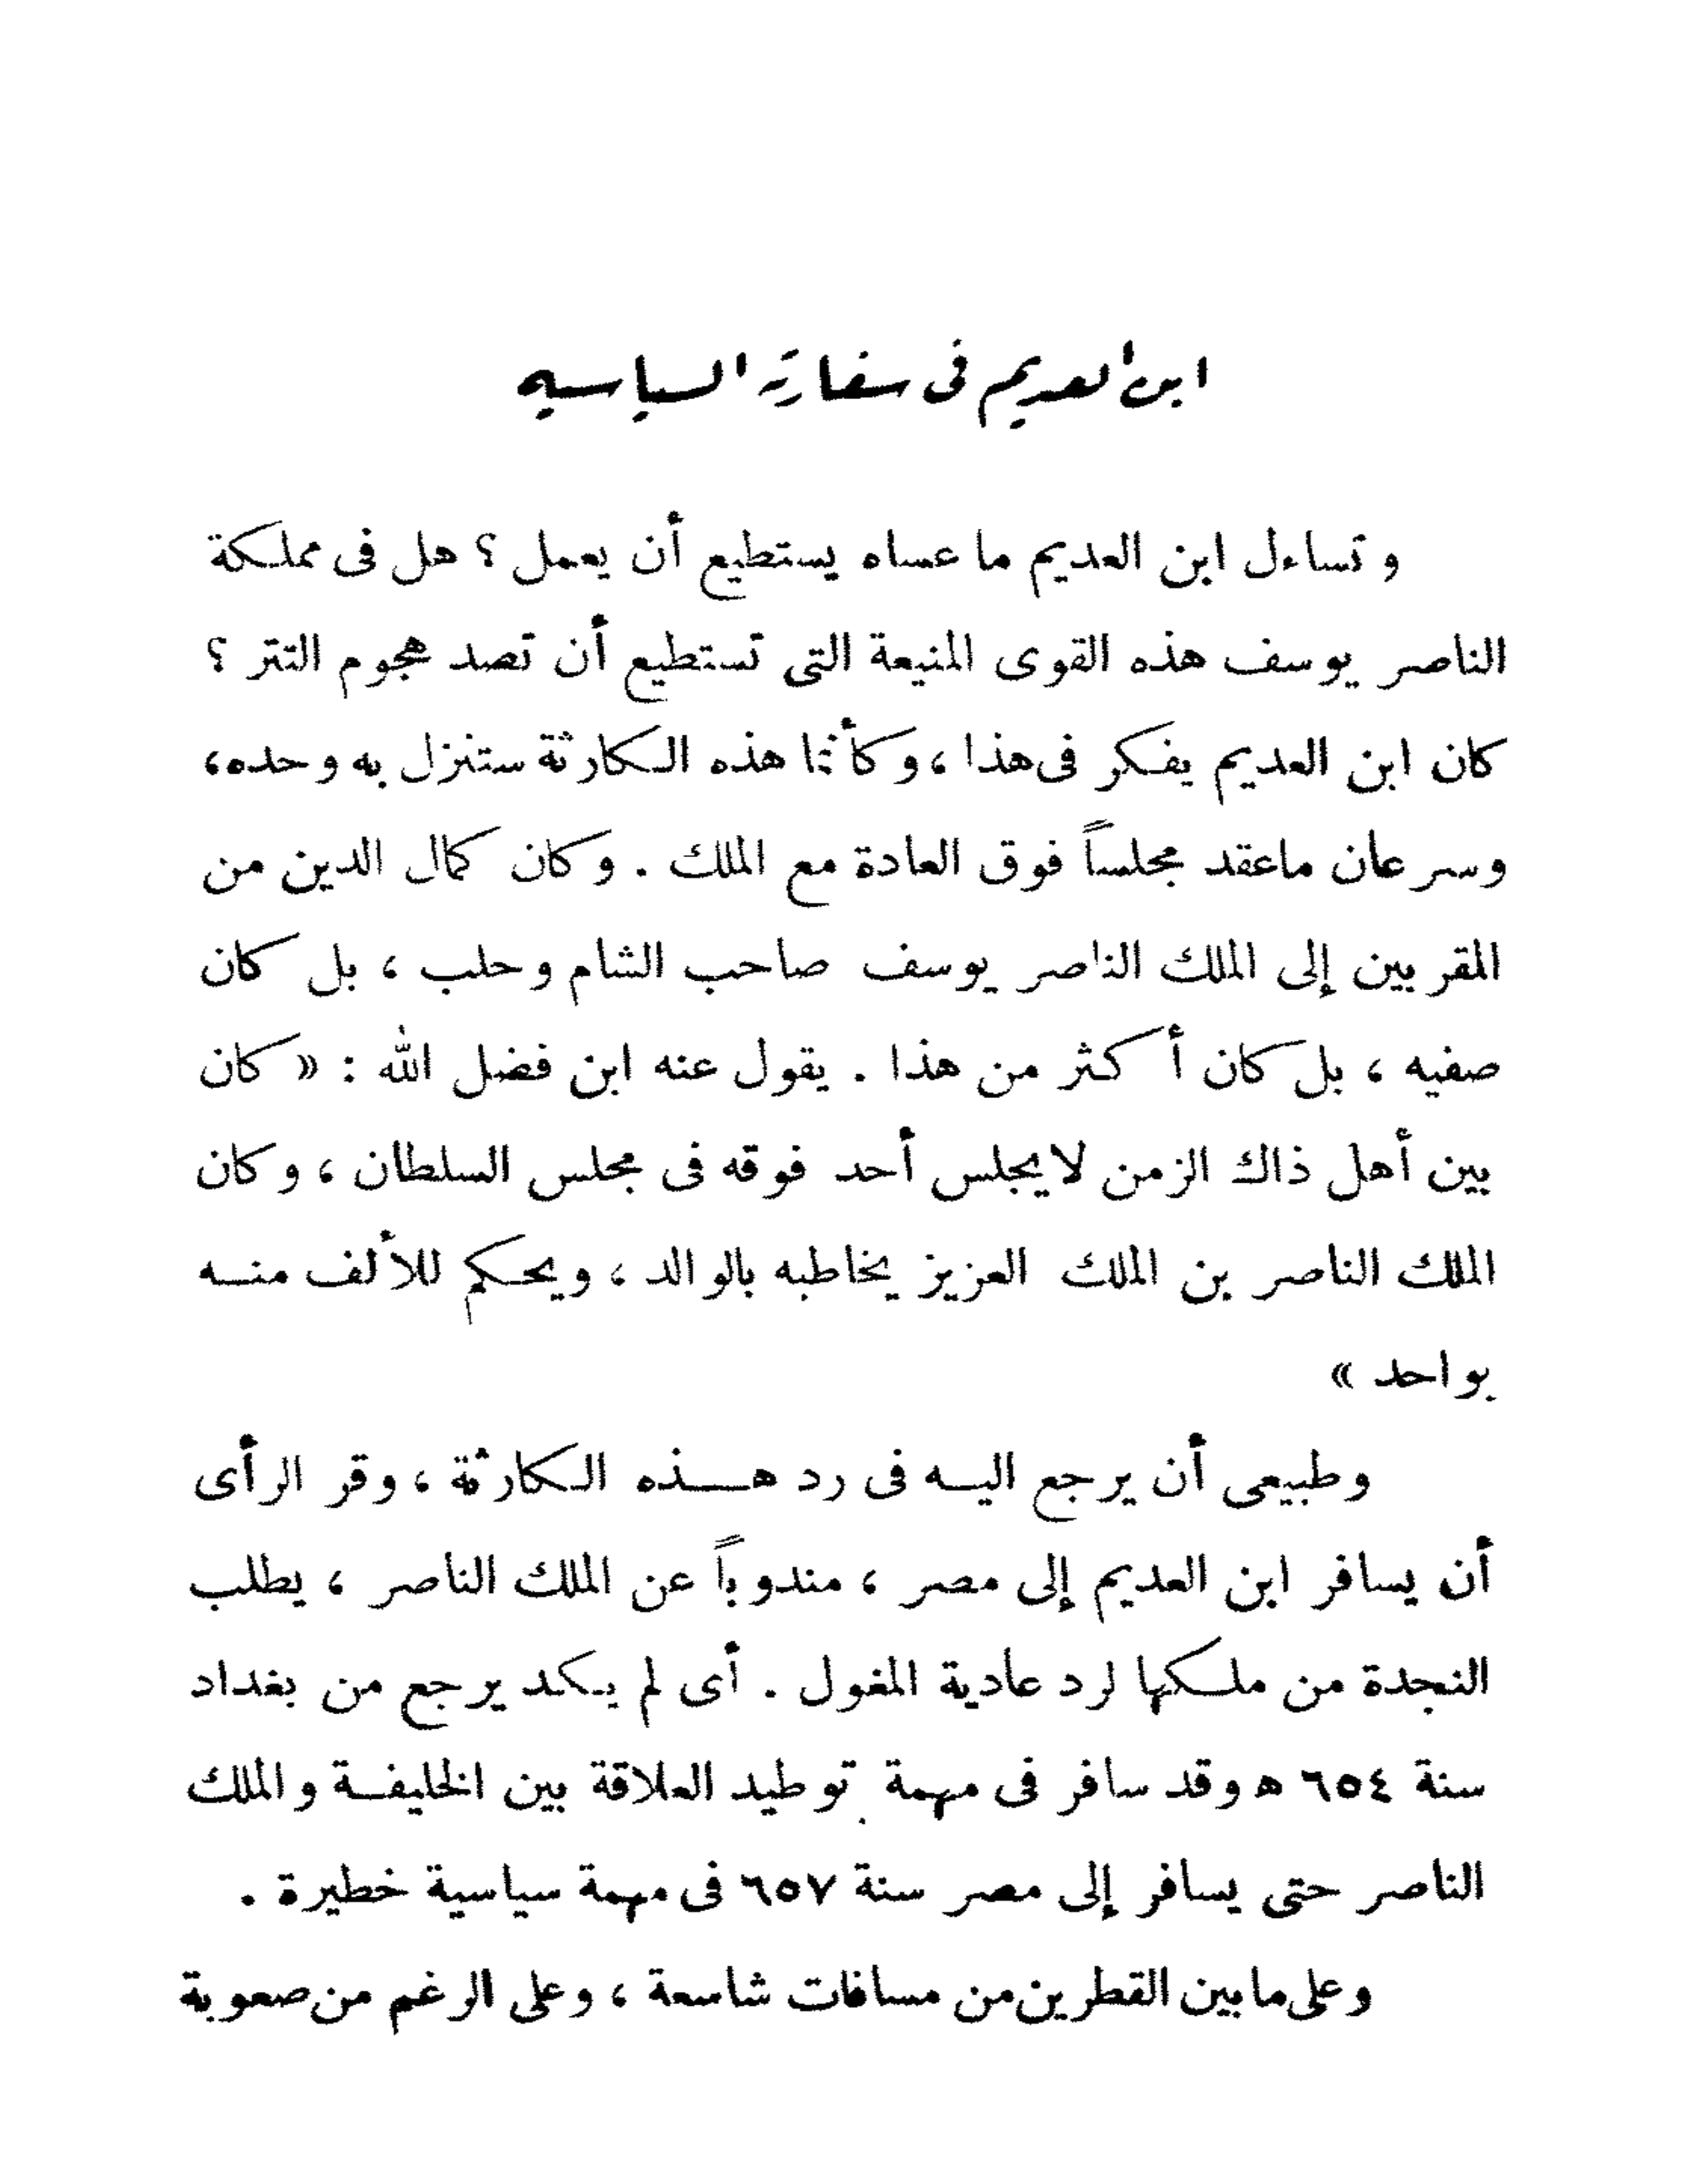 ابن العديم فى سفارته السياسية
وتساءل ابن العديم ما عساه يستطيع أن يعمل ؟ هل فى مملكة
الناصر يوسف هذه القوى المنيعة التى تستطيع أن تصد هجوم التتر ؟
كان ابن العديم يفكر فى هذا ، وكأنما هذه الكارثة ستنزل به وحده،
وسرعان ماعقد مجلساً فوق العادة مع الملك . وكان كمال الدين من
المقربين إلى الملك الناصر يوسف صاحب الشام وحلب ، بل كان
صفيه ، بل كان أكثر من هذا . يقول عنه ابن فضل الله : « كان
بين أهل ذاك الزمن لا يجلس أحد فوقه فى مجلس السلطان ، وكان
الملك الناصر بن الملك العزيز يخاطبه بالوالد ، ويحكم للألف منه
بواحد »
وطبيعى أن يرجع اليه فى رد هذه الكارثة ، وقر الرأى
أن يسافر ابن العديم إلى مصر ، مندوباً عن الملك الناصر ، يطلب
النجدة من ملكها لرد عادية المغول . أى لم يكد يرجع من بغداد
سنة ٦٥٤ ه وقد سافر فى مهمة توطيد العلاقة بين الخليفة والملك
الناصر حتى يسافر إلى مصر سنة ٦٥٧ فى مهمة سياسية خطيرة .
وعلى مابين القطرين من مسافات شاسعة ، وعلى الرغم من صعوبة